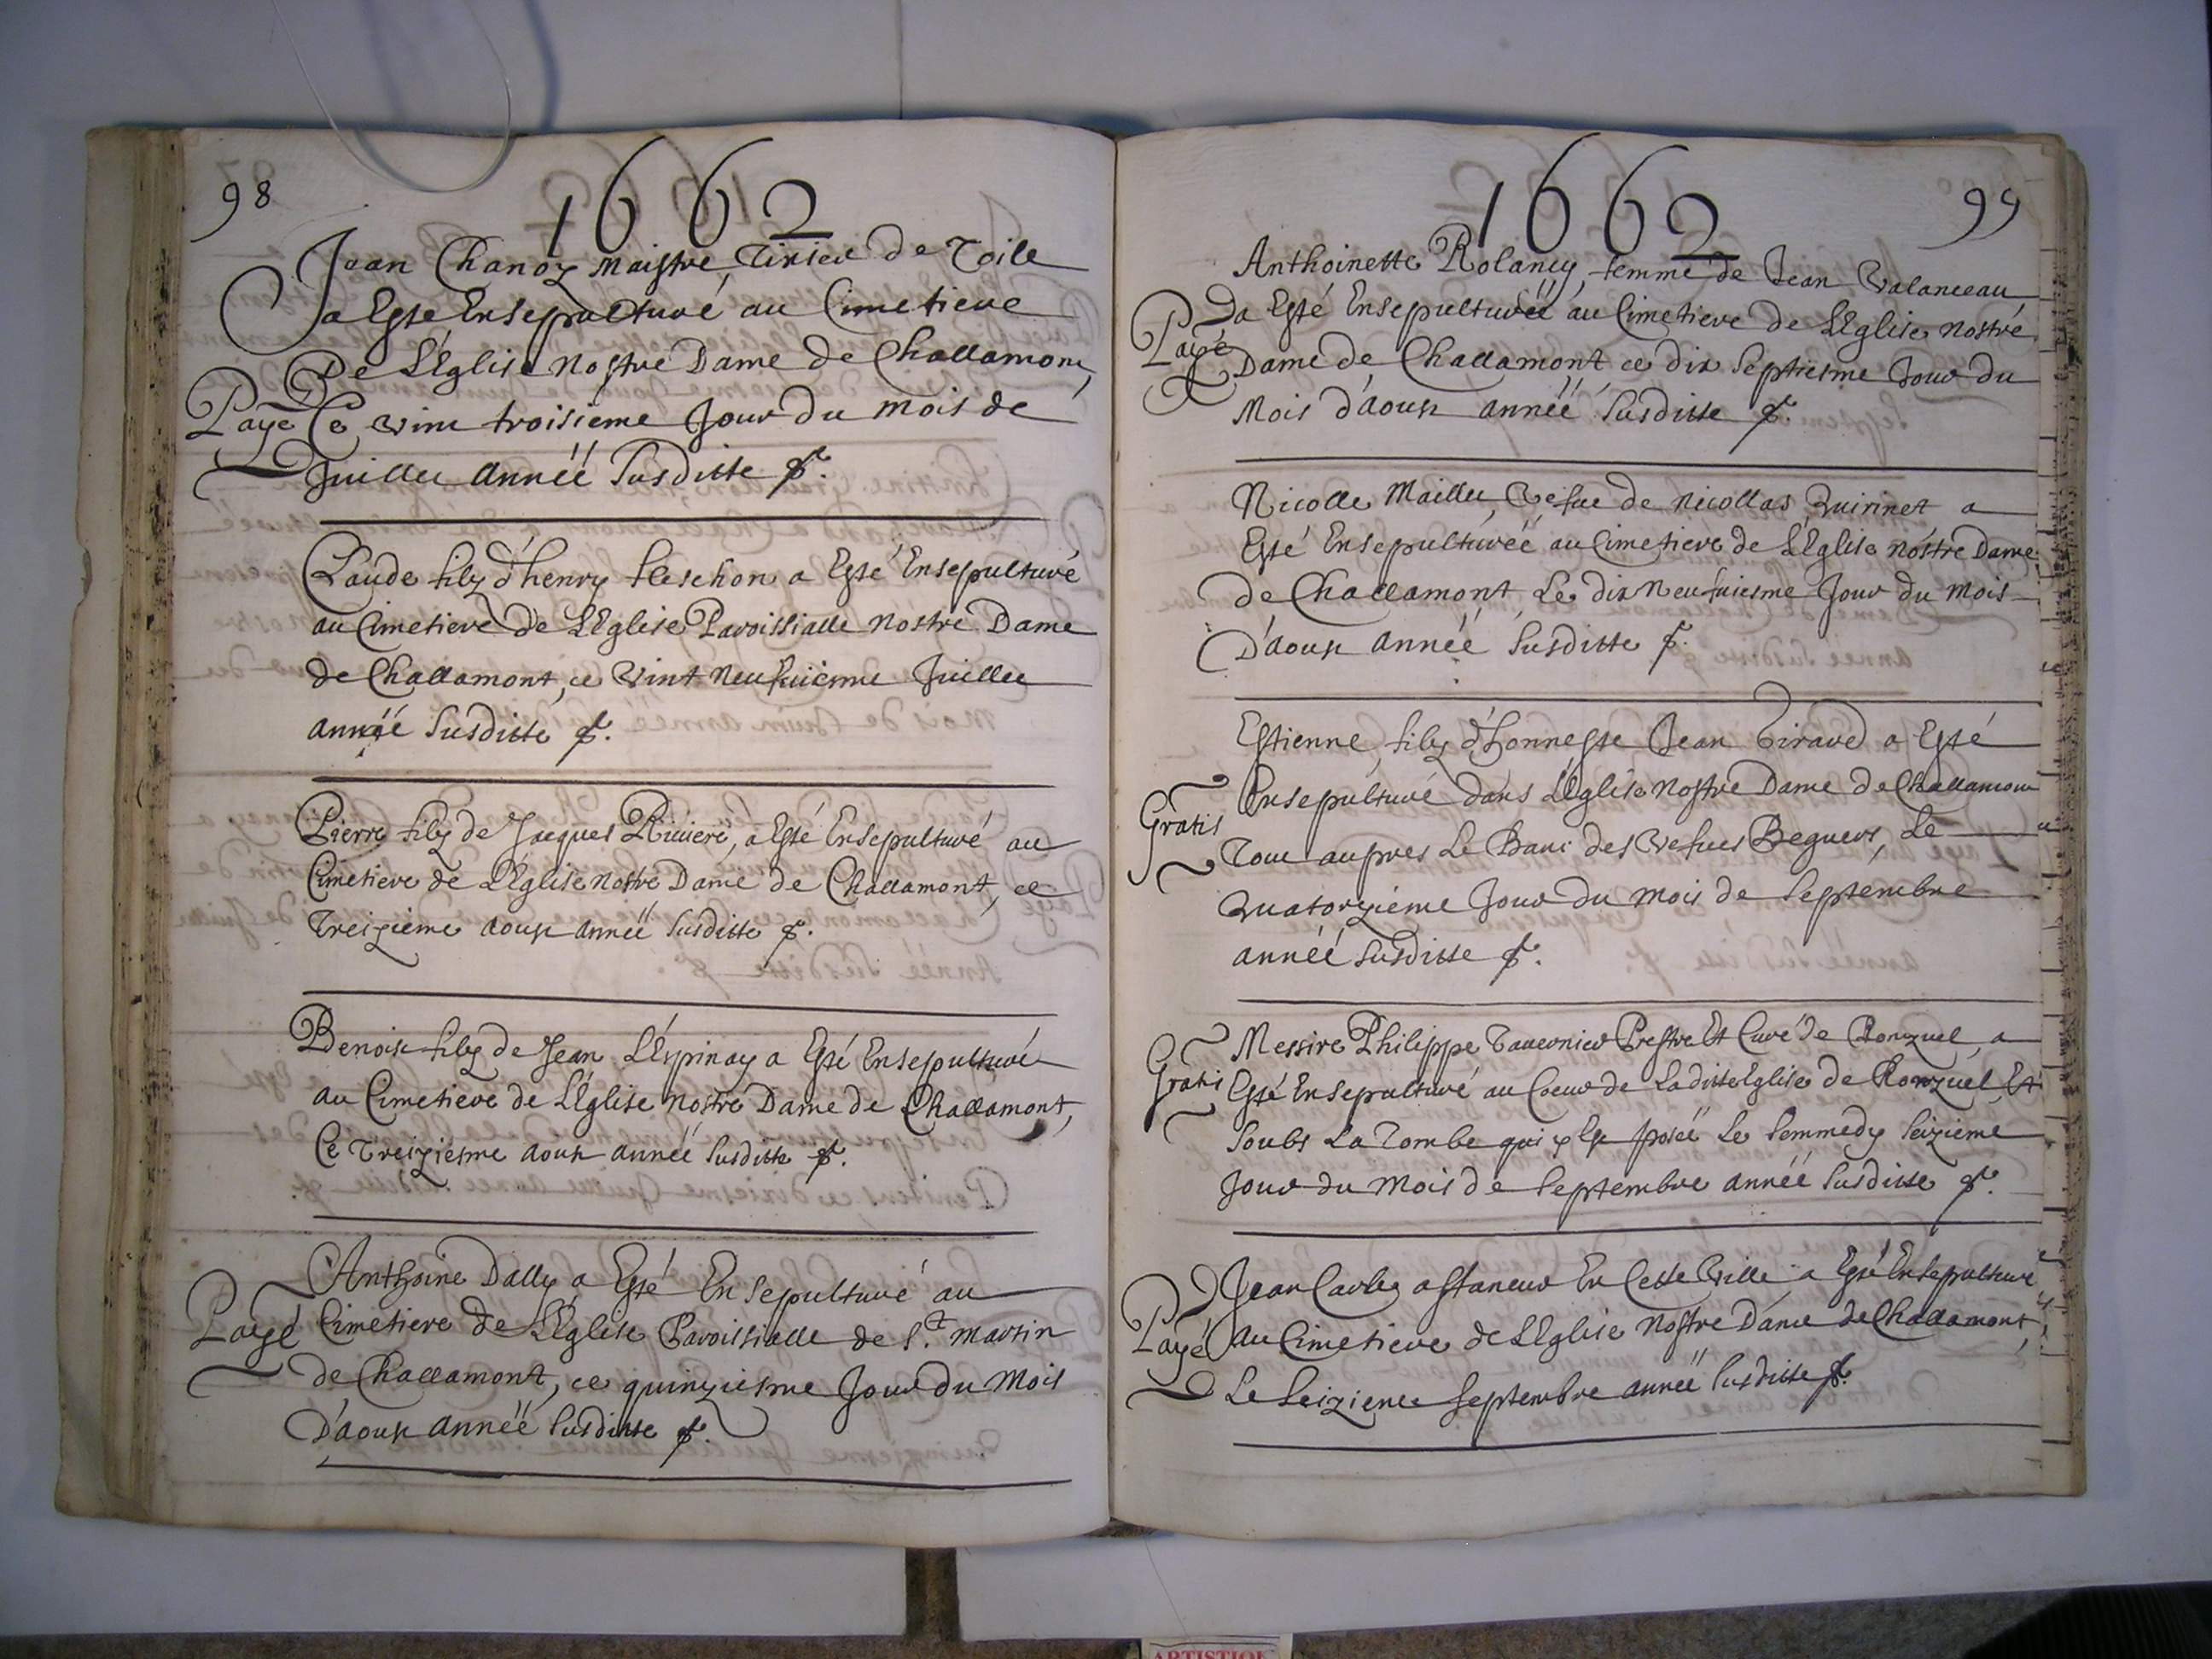 98
1662
Jean Chanoz Maistre Tixier de Toile
a Esté Ensepulturé au Cimetiere
De L'Eglise Nostre Dame de Challamont,
Payé Ce vint troisieme Jour du mois de
Juillet année Susditte
Claude filz d'henry fleschon a Esté Ensepulturé
au Cimetiere de L'Eglise Paroissialle Nostre Dame
de Challamont, ce Vint Neufuiesme Juillet
année Susditte
Pierre filz de Jacques Riuiere, a Esté Ensepulturé au
Cimetiere de L'Eglise Nostre Dame de Challamont, ce
Treizieme aoust année Susditte
Benoist filz de Jean L'Espinay a Esté Ensepulturé
au Cimetiere de L'Eglise Nostre Dame de Challamont,
Ce Treiziesme aoust année Susditte
Anthoine Dally a Esté Ensepulturé au
Payé Cimetiere de L'Eglise Paroissialle de St. Martin
de Challamont, ce quinziesme Jour du Mois
D'aoust année Susditte
1662
99
Anthoinette Rolancy, femme de Jean Valanceau,
a Esté Ensepulturéé au Cimetiere de L'Eglise Nostre
Payé Dame de Challamont ce dix Septiesme Jour du
Mois d'aoust année Susditte
Nicolle Maillet, Vefue de Nicollas Quirinet a
Esté Ensepulturéé au Cimetiere de L'Eglise Nostre Dame
de Challamont Le dix Neufuiesme Jour du Mois
D'aoust année Susditte
Estienne, filz d'honneste Jean Girard a Esté
Ensepulturé dans L'Eglise Nostre Dame de Challamont
Gratis Tout aupres Le Banc des Vefues Beguers, Le
Quatorzieme Jour du Mois de Septembre
année Susditte
Messire Philippe Tauernier Prestre Et Curé de Ronzuel, a
Gratis Esté Ensepulturé au Cœur de Laditte Eglise de Ronzuel, Et
Soubs La Tombe qui y est posée Le Semmedy Seizieme
Jour du Mois de Septembre année Susditte
Jean Carlez affaneur En Cette Ville a Esté Ensepulturé
Payé au Cimetiere de L'Eglise Nostre Dame de Challamont,
Le Seizieme Septembre année Susditte